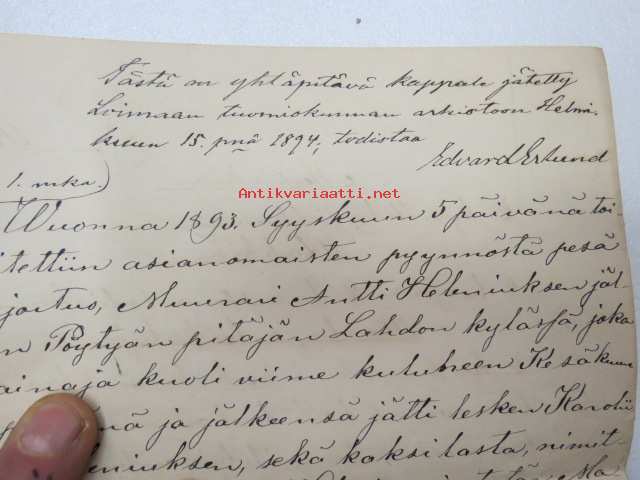 Tästä on yhtäpitävä kappale jätetty
Loimaan tuomiokunnan arkistoon Helmi-
kuun 15. pnä 1894; todistaa
Edvard Erlund
1. mka.
Antikvariaatti.net
Wuonna 1893. Syyskuun 5 päivänä toi-
itettiin asianomaisten pyynnöstä pesä
joitus, Muurari Antti Heleniuksen jäl-
n Pöytyän pitäjän Lahdon kylässä, joka
ainaja kuoli viime kuluneen Kesäkuun
nä ja jälkeensä jätti lesken Karolii
leniuksen, sekä kaksi lasta, nimit-